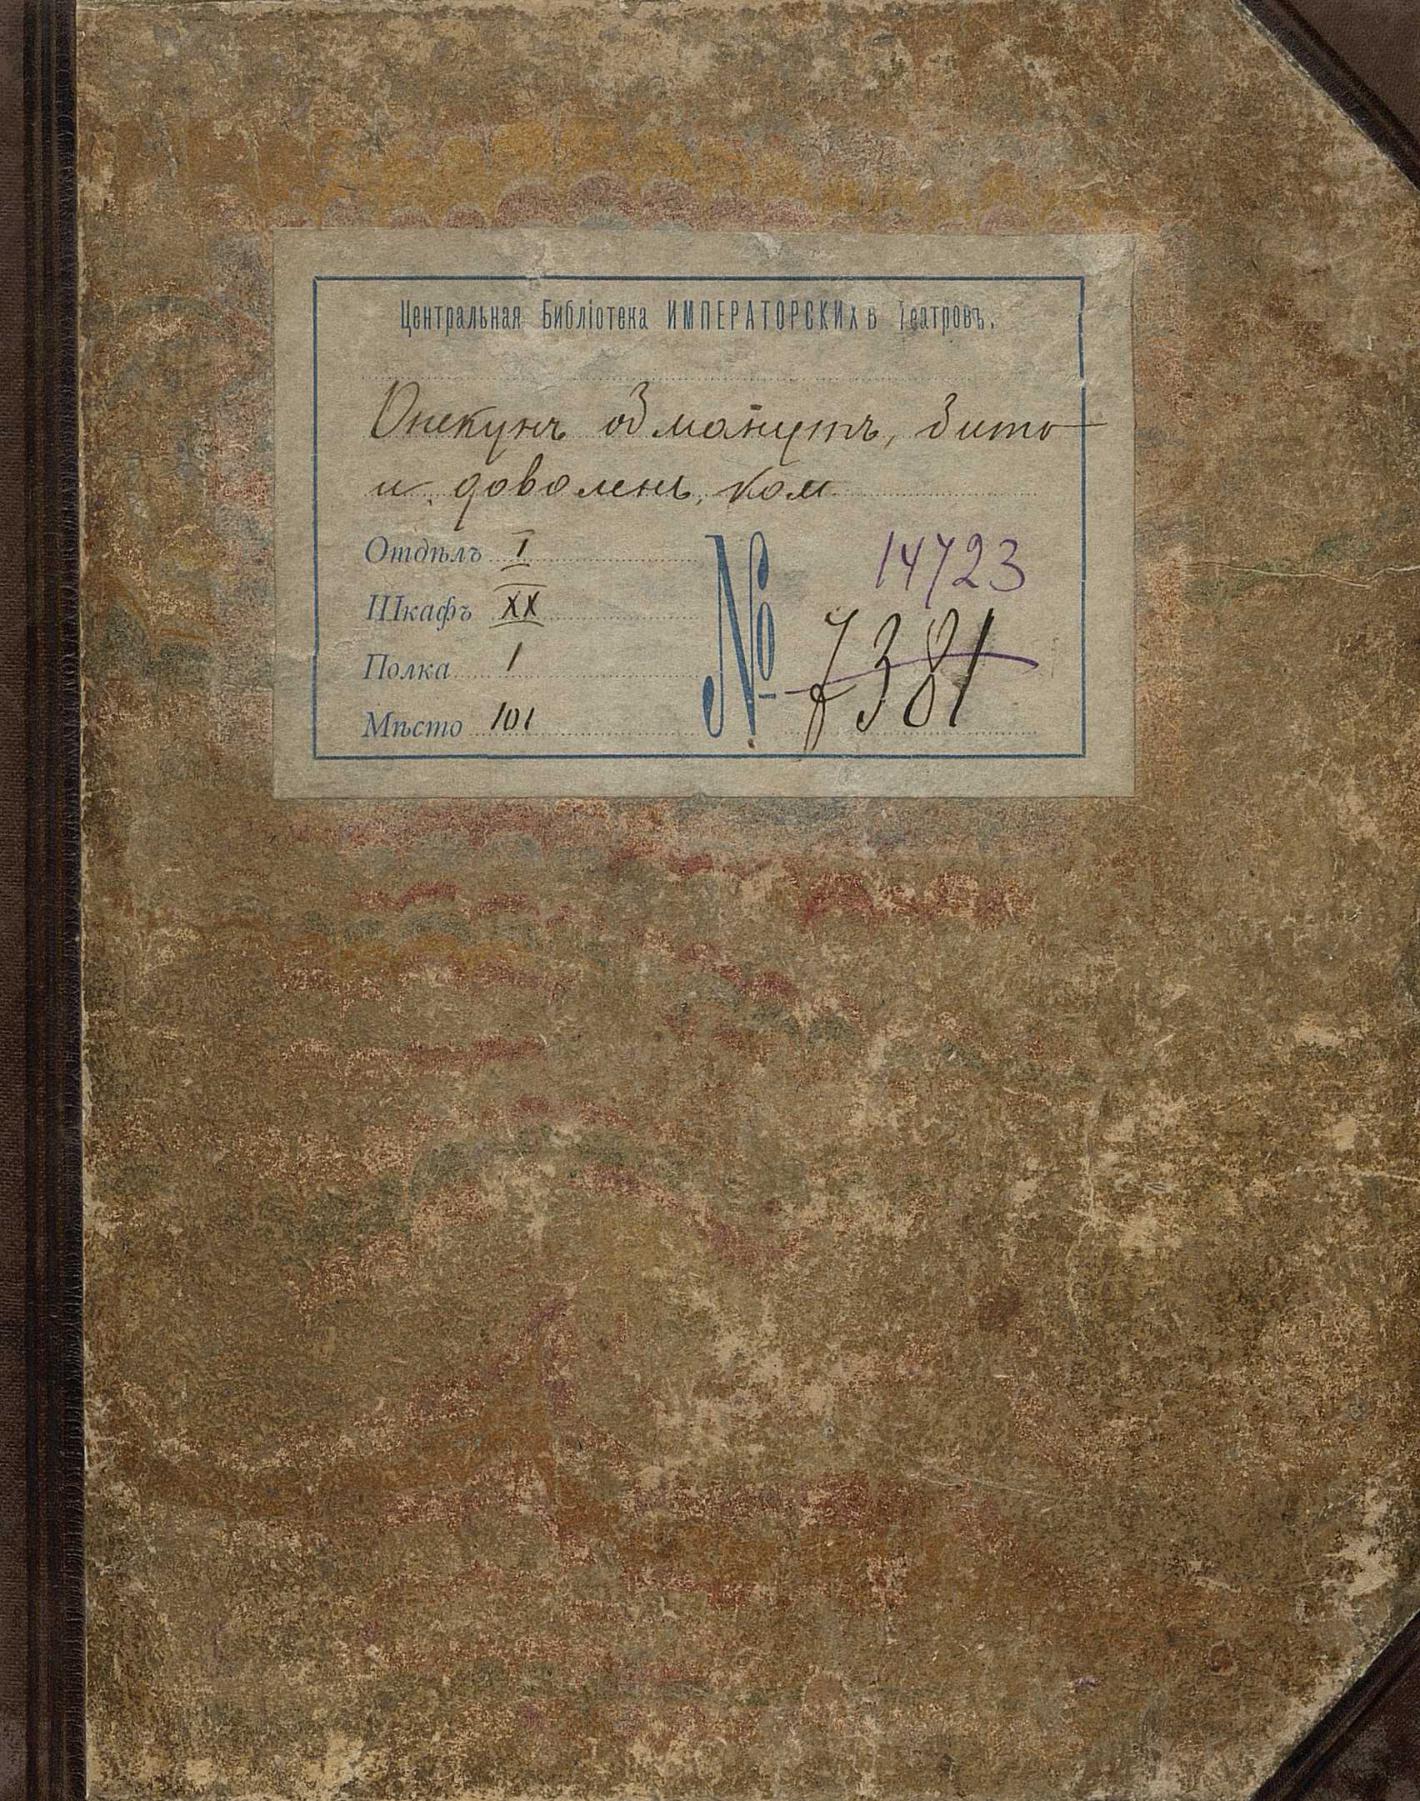 Центральная Библіотека ИМПЕРАТОРСКИХЪ Театровъ.
Опекунъ обманутъ, битъ
и доволенъ, ком.
Отдѣлъ I
Шкафъ XX
Полка 1
Мѣсто 101
№
14723
7381